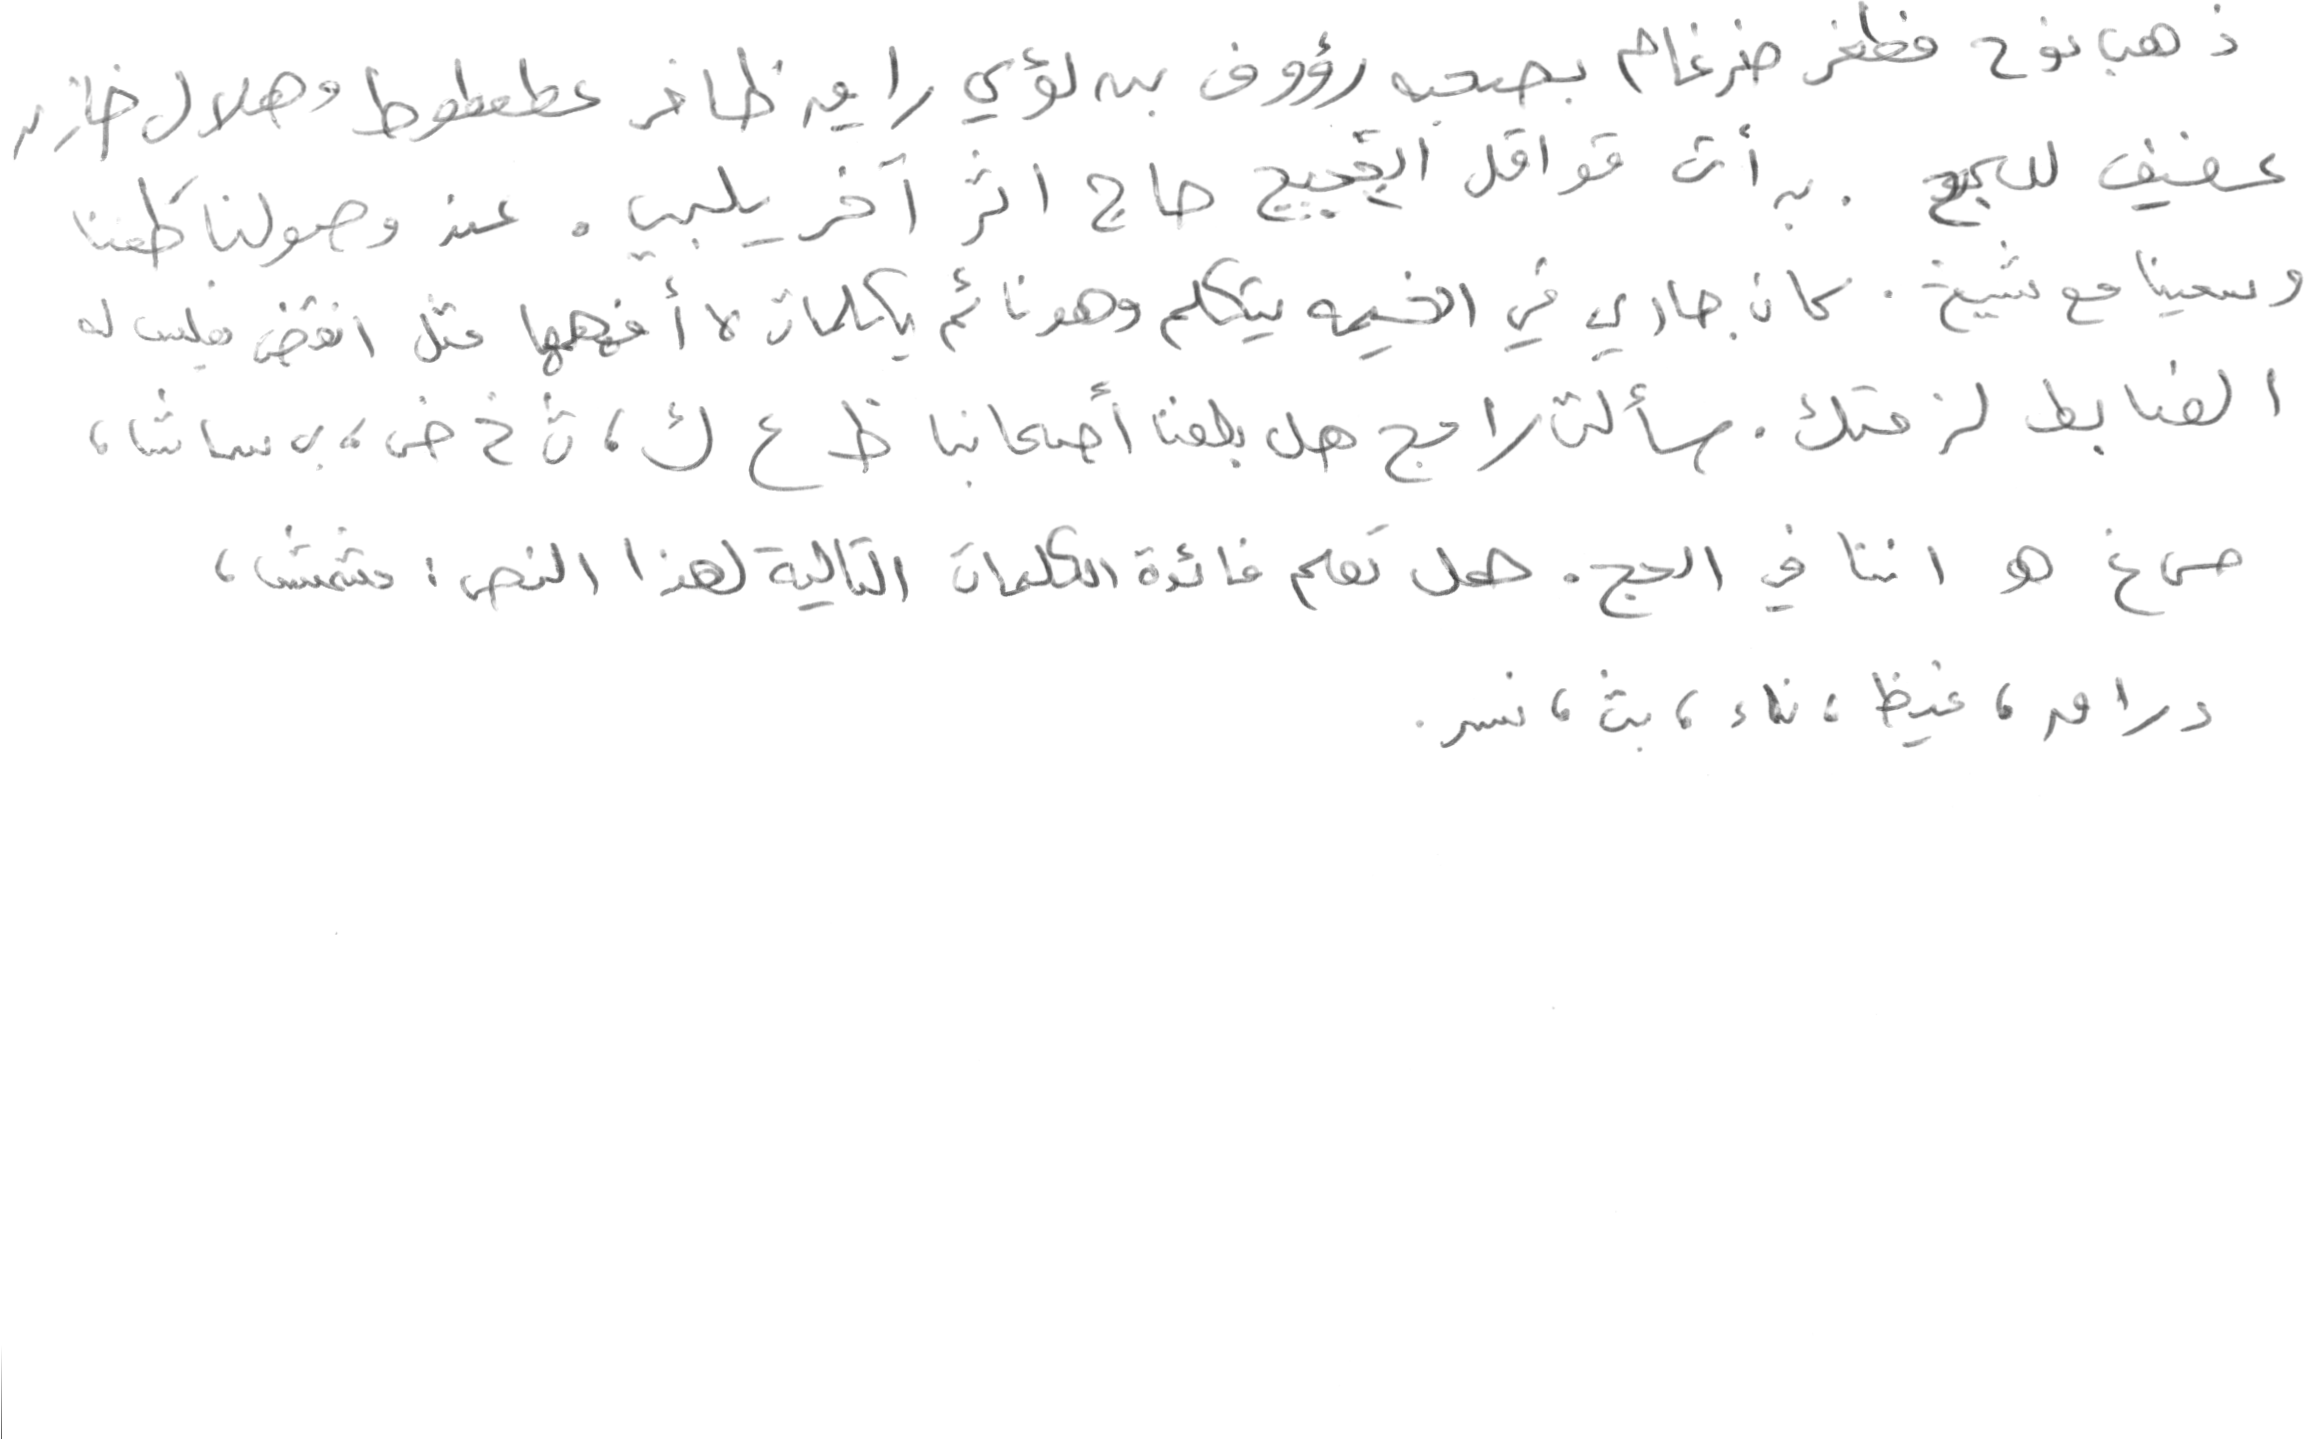 ذهب نوح مظفر ضرغام بصحبه رؤوف بن لؤي رامز ظافر عطعطوط وهلال خازن
عفيف للحج . أت قوافل الحجيج حاج اثر آخر يلبي . عند وصولنا طفنا
وسعينا مع شيخ . كان جاري في الخيمه يتكلم وهو نائم بكلمات لا أفهمها مثل انقض فليس له
الضابط لزمتك . سألت راجح هل بلغنا أصحابنا ظ ع ك ، ث خ ض ، ساشا ،
ص غ هو اننا في الحج . هل تعلم فائدة الكلمات التالية لهذا النص : مشمش ،
دراهم ، غيظ ، نماء ، بث ، نسر .